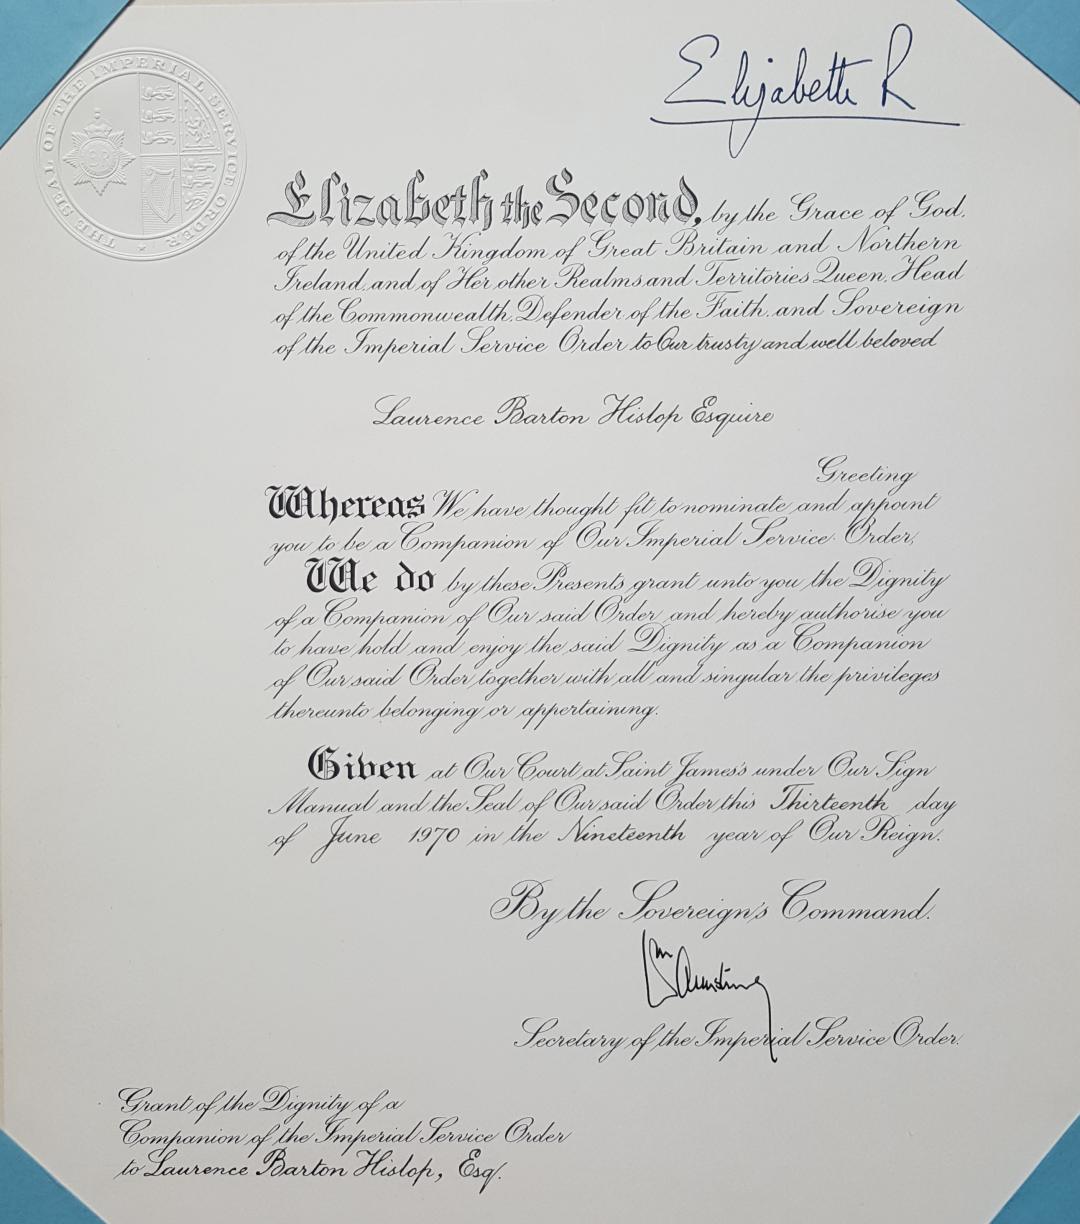 THE SEAL OF THE IMPERIAL SERVICE ORDER
Elizabeth R
Elizabeth the Second, by the Grace of God,
of the United Kingdom of Great Britain and Northern
Ireland, and of Her other Realms and Territories Queen, Head
of the Commonwealth, Defender of the Faith, and Sovereign
of the Imperial Service Order to Our trusty and well beloved
Laurence Barton Hislop Esquire
Greeting
Whereas We have thought fit to nominate and appoint
you to be a Companion of Our Imperial Service Order,
We do by these Presents grant unto you the Dignity
of a Companion of Our said Order and hereby authorise you
to have hold and enjoy the said Dignity as a Companion
of Our said Order together with all and singular the privileges
thereunto belonging or appertaining.
Given at Our Court at Saint James's under Our Sign
Manual and the Seal of Our said Order this Thirteenth day
of June 1970 in the Nineteenth year of Our Reign.
By the Sovereign's Command.
Secretary of the Imperial Service Order.
Grant of the Dignity of a
Companion of the Imperial Service Order
to Laurence Barton Hislop, Esq.